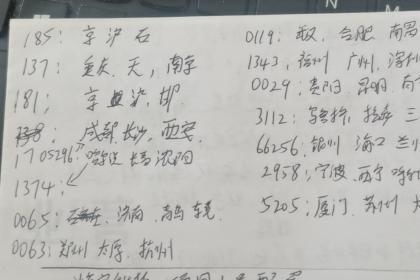 185: 京 沪 石
137: 重庆, 天, 南京
181; 京 沪, 邯
成都, 长沙, 西安
1705296: 哈尔滨 长春 沈阳
1374:
0065: 济南, 青岛
0063: 郑州 太原, 杭州
0119: 合肥, 南昌
1343, 福州 广州, 深圳
0029; 贵阳, 昆明, 南
3112: 三
66256: 银川 海口 兰
2958; 宁波, 西宁 呼和
5205: 厦门, 苏州